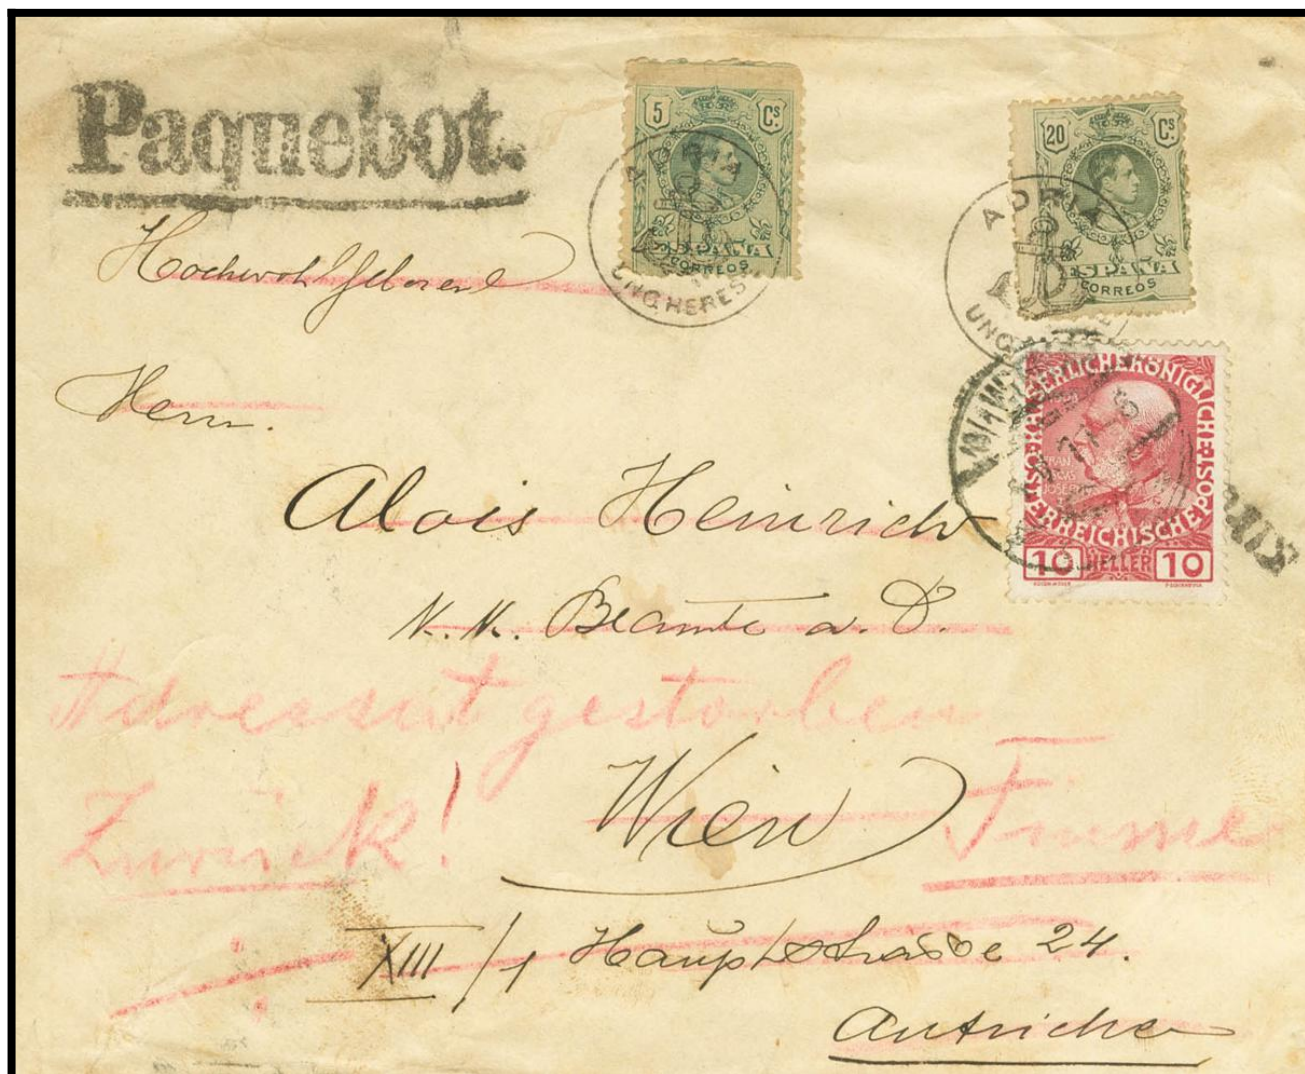 Paquebot.
5 Cs
ESPAÑA
CORREOS
ADRIA
UNGHERESE
20 Cs.
ESPAÑA
CORREOS
ADRIA
KAISERLICHE KÖNIGLICHE ÖSTERREICHISCHE POST
10 HELLER 10
Hochwohlgeboren
Herrn.
Alois Heinrich
K. K. Beamte a. D.
Adressat gestorben
Zurück!
Wien
Fiume
XIII/1 Hauptstrasse 24.
Autriche